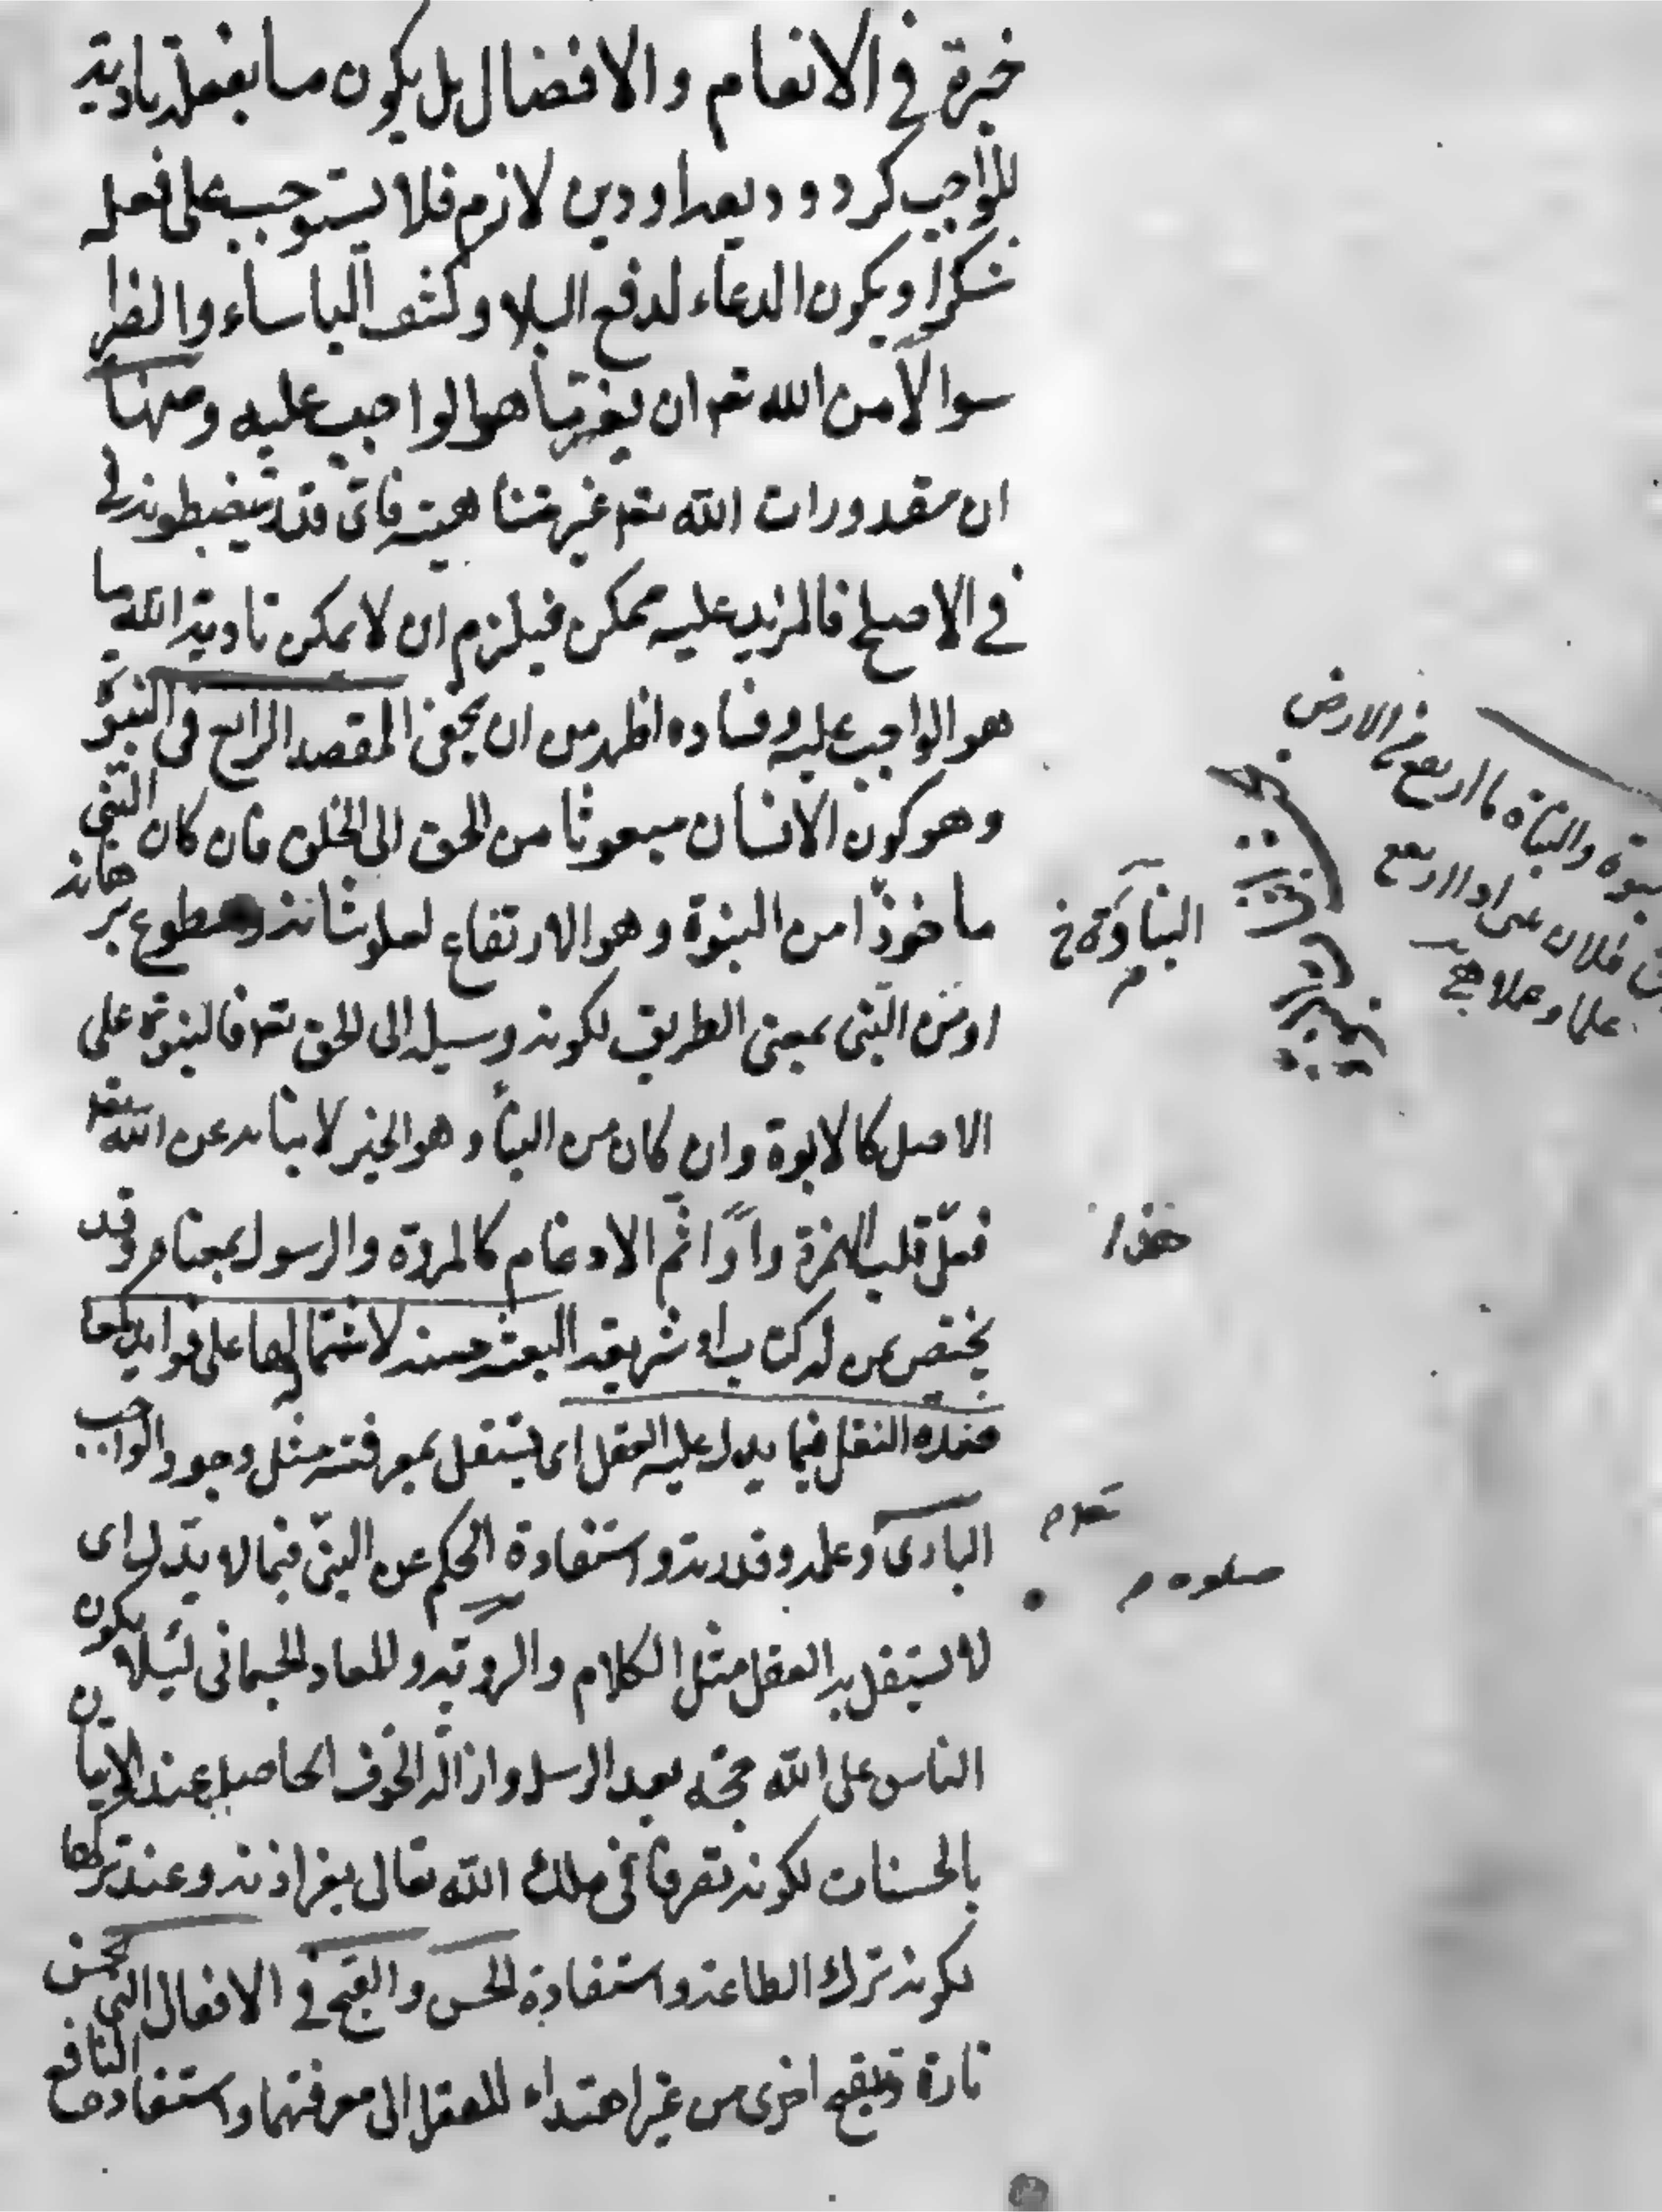 خيرة في الانعام والافضال بل يكون ما يفعله تادية
للواجب كرد وديعة او دين لازم فلا يستوجب على فعله
شكرا ويكون الدعاء لدفع البلا وكشف الباساء والضر
سوالا من الله تعم ان يغير ما هو الواجب عليه ومنها
ان مقدورات الله تعم غير متناهية فاى قدر يضبطونه
في الاصلح فالمزيد عليه ممكن فيلزم ان لا يمكن تادية الله ما
هو الواجب عليه وفساده اظهر من ان يخفى المقصد الرابع في النبوة
وهو كون الانسان مبعوثا من الحق الى الخلق فان كان النبي
ماخوذا من النبوة وهو الارتفاع لعلو شانه وسطوع برهانه
او من النبى بمعنى الطريق لكونه وسيلة الى الحق تعم فالنبوة على
الاصل كالابوة وان كان من النبأ وهو الخبر لانبائه عن الله تعم
فعلى قلب الهمزة واوا ثم الادغام كالمروة والرسول بمعناه وقد
يختص بمن له كتاب او شريعة البعثة حسنة لاشتمالها على فوايد كمعا
ضدة النقل فيما يدل عليه العقل اى يستقل بمعرفته مثل وجود الواجب
البارى وعلمه وقدرته واستفادة الحكم عن النبى فيما لا يدل اى
لا يستقل به العقل مثل الكلام والروية والمعاد الجسمانى لئلا يكون
الناس على الله حجة بعد الرسل وازالة الخوف الحاصل عند الاتيان
بالحسنات لكونه تصرفا فى ملك الله تعالى بغير اذنه وعند تركها
لكونه ترك الطاعة واستفادة الحسن والقبح في الافعال التي تحسن
تارة وتقبح اخرى من غير اهتداء للعقل الى معرفتهما واستفادة النافع
ما ارتفع من الارض
النباوة خ